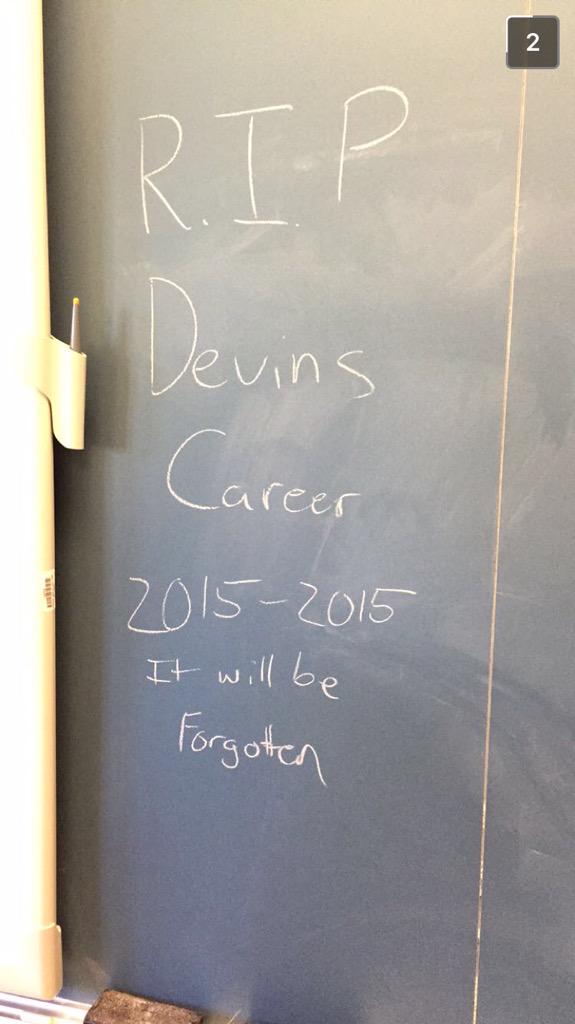 2
R.I.P
Devins
Career
2015-2015
It will be
Forgotten